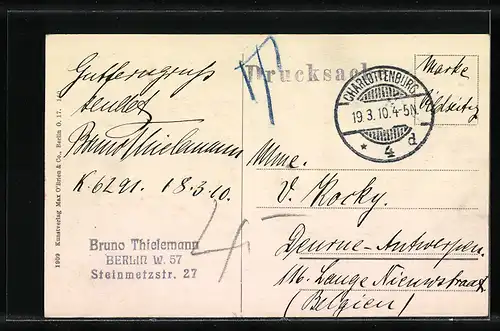 Gutferngruss
sendet
Bruno Thielemann
K 6291. 18.3.10.
Bruno Thielemann
BERLIN W. 57
Steinmetzstr. 27
1909 Kunstverlag Max O'Brien & Co., Berlin O. 17.
Drucksache
CHARLOTTENBURG
19.3.10.4-5N.
* 4 d
Marke
bildseitig
Mme.
V. Kocky.
Deurne-Antwerpen.
116. Lange Nieuwstraat
(Belgien)